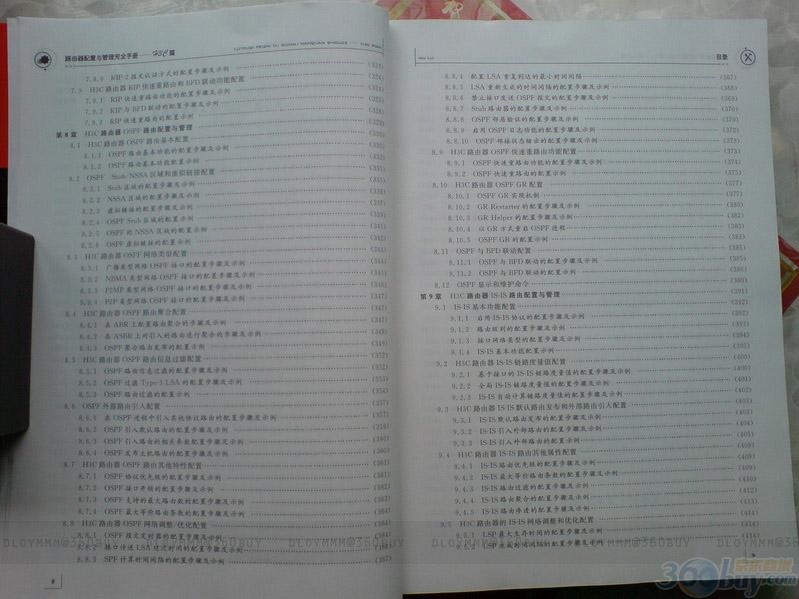 路由器配置与管理完全手册——H3C篇
7.8.9 RIP-2报文认证方式的配置步骤及示例
7.9 H3C路由器RIP快速重路由和BFD联动功能配置
7.9.1 RIP快速重路由功能的配置步骤及示例
7.9.2 RIP与BFD联动的配置步骤及示例
7.9.3 RIP快速重路由的配置示例
第8章 H3C路由器OSPF路由配置与管理
8.1 H3C路由器OSPF路由基本配置
8.1.1 OSPF路由基本功能的配置步骤及示例
8.1.2 OSPF路由基本功能配置示例
8.2 OSPF Stub/NSSA区域和虚拟链接配置
8.2.1 Stub区域的配置步骤及示例
8.2.2 NSSA区域的配置步骤及示例
8.2.3 虚拟链接的配置步骤及示例
8.2.4 OSPF Stub区域的配置示例
8.2.5 OSPF的NSSA区域的配置示例
8.2.6 OSPF虚拟链接的配置示例
8.3 H3C路由器OSPF网络类型配置
8.3.1 广播类型网络OSPF接口的配置步骤及示例
8.3.2 NBMA类型网络OSPF接口的配置步骤及示例
8.3.3 P2MP类型网络OSPF接口的配置步骤及示例
8.3.4 P2P类型网络OSPF接口的配置步骤及示例
8.4 H3C路由器OSPF路由聚合配置
8.4.1 在ABR上配置路由聚合的步骤及示例
8.4.2 在ASBR上对引入的路由进行聚合的步骤及示例
8.4.3 OSPF聚合路由发布的配置示例
8.5 H3C路由器OSPF路由信息过滤配置
8.5.1 OSPF路由信息过滤的配置步骤及示例
8.5.2 OSPF过滤Type-3 LSA的配置步骤及示例
8.5.3 OSPF路由过滤的配置示例
8.6 OSPF外部路由引入配置
8.6.1 在OSPF进程中引入其他协议路由的配置步骤及示例
8.6.2 OSPF引入默认路由的配置步骤及示例
8.6.3 OSPF引入路由的相关参数配置步骤及示例
8.6.4 OSPF发布主机路由的配置步骤及示例
8.7 H3C路由器OSPF路由其他特性配置
8.7.1 OSPF协议优先级的配置步骤及示例
8.7.2 OSPF接口开销的配置步骤及示例
8.7.3 OSPF支持的最大路由数的配置步骤及示例
8.7.4 OSPF最大等价路由条数的配置步骤及示例
8.8 H3C路由器OSPF网络调整/优化配置
8.8.1 OSPF报文定时器的配置步骤及示例
8.8.2 接口传送LSA延迟时间的配置步骤及示例
8.8.3 SPF计算时间间隔的配置步骤及示例
8
目录
8.8.4 配置LSA重复到达的最小时间间隔 (367)
8.8.5 LSA重新生成的时间间隔的配置步骤及示例 (368)
8.8.6 禁止接口发送OSPF报文的配置步骤及示例 (368)
8.8.7 Stub路由器的配置步骤及示例 (369)
8.8.8 OSPF邻居验证的配置步骤及示例 (370)
8.8.9 启用OSPF日志功能的配置步骤及示例 (372)
8.8.10 OSPF邻接状态输出的配置步骤及示例 (373)
8.9 H3C路由器OSPF快速重路由功能配置 (373)
8.9.1 OSPF快速重路由功能的配置步骤及示例 (374)
8.9.2 OSPF快速重路由的配置示例 (375)
8.10 H3C路由器OSPF GR配置 (377)
8.10.1 OSPF GR实现机制 (377)
8.10.2 GR Restarter的配置步骤及示例 (380)
8.10.3 GR Helper的配置步骤及示例 (382)
8.10.4 以GR方式重启OSPF进程 (383)
8.10.5 OSPF GR的配置示例
8.11 OSPF与BFD联动配置 (385)
8.11.1 OSPF与BFD联动的配置步骤及示例 (385)
8.11.2 OSPF与BFD联动的配置示例 (386)
8.12 OSPF显示和维护命令
第9章 H3C路由器IS-IS路由配置与管理 (391)
9.1 IS-IS基本功能配置 (392)
9.1.1 启用IS-IS协议的配置步骤及示例
9.1.2 路由级别的配置步骤及示例
9.1.3 接口网络类型的配置步骤及示例
9.1.4 IS-IS基本功能配置示例
9.2 H3C路由器IS-IS链路度量值配置 (400)
9.2.1 基于接口的IS-IS链路度量值的配置步骤及示例
9.2.2 全局IS-IS链路度量值的配置步骤及示例
9.2.3 IS-IS自动计算链路度量值的配置步骤及示例
9.3 H3C路由器IS-IS默认路由发布和外部路由引入配置
9.3.1 IS-IS默认路由发布的配置步骤及示例
9.3.2 IS-IS引入外部路由的配置步骤及示例
9.3.3 IS-IS引入外部路由的配置示例
9.4 H3C路由器IS-IS路由其他属性配置 (409)
9.4.1 IS-IS路由优先级的配置步骤及示例
9.4.2 IS-IS最大等价路由条数的配置步骤及示例
9.4.3 IS-IS路由过滤的配置步骤及示例
9.4.4 IS-IS路由聚合的配置步骤及示例
9.4.5 IS-IS路由渗透的配置步骤及示例
9.5 H3C路由器的IS-IS网络调整和优化配置 (414)
9.5.1 LSP最大生存时间的配置步骤及示例 (414)
9.5.2 LSP
DLOYMMM@360BUY DLOYMMM@360BUY DLOYMMM@360BUY
京东商城
360buy.com